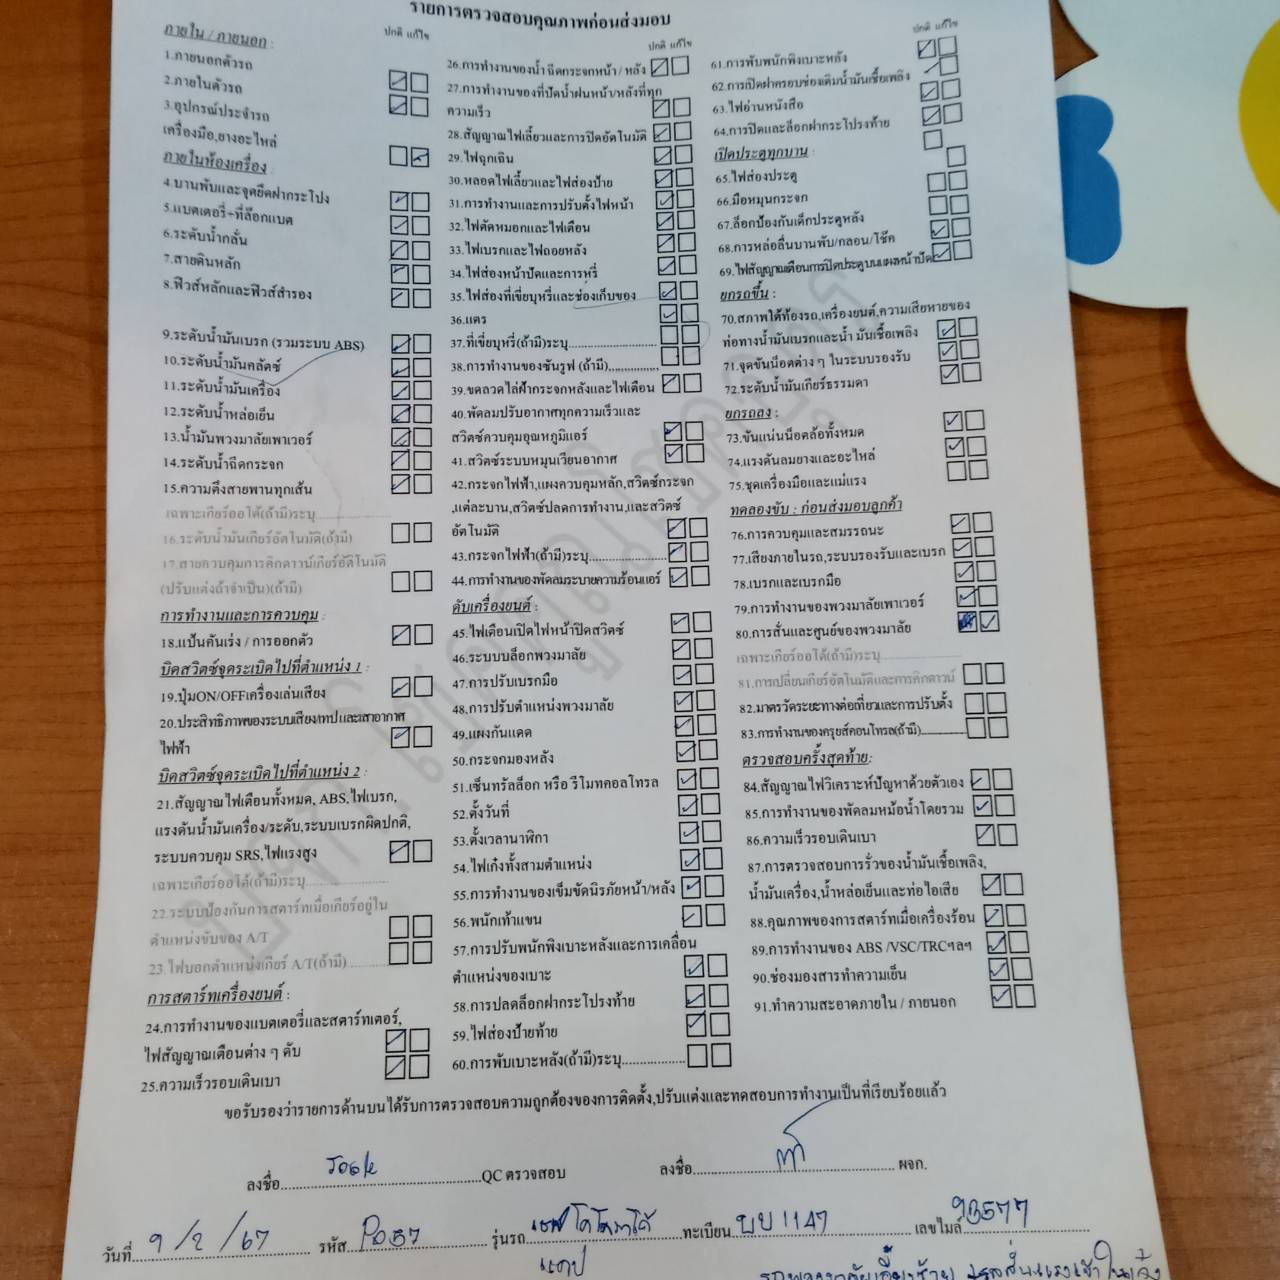 รายการตรวจสอบคุณภาพก่อนส่งมอบ
ปกติ แก้ไข
ภายใน / ภายนอก :
1.ภายนอกตัวรถ
2.ภายในตัวรถ
3.อุปกรณ์ประจำรถ
เครื่องมือ,ยางอะไหล่
ภายในห้องเครื่อง :
4.บานพับและจุดยึดฝากระโปง
5.แบตเตอรี่+ที่ล๊อกแบต
6.ระดับน้ำกลั่น
7.สายดินหลัก
8.ฟิวส์หลักและฟิวส์สำรอง
9.ระดับน้ำมันเบรก (รวมระบบ ABS)
10.ระดับน้ำมันคลัตซ์
11.ระดับน้ำมันเครื่อง
12.ระดับน้ำหล่อเย็น
13.น้ำมันพวงมาลัยเพาเวอร์
14.ระดับน้ำฉีดกระจก
15.ความตึงสายพานทุกเส้น
เฉพาะเกียร์ออโต้(ถ้ามี)ระบุ
16.ระดับน้ำมันเกียร์อัตโนมัติ(ถ้ามี)
17.สายควบคุมการคิกดาวน์เกียร์อัติโนมัติ
(ปรับแต่งถ้าจำเป็น)(ถ้ามี)
การทำงานและการควบคุม :
18.แป้นคันเร่ง / การออกตัว
บิดสวิตซ์จุดระเบิดไปที่ตำแหน่ง 1 :
19.ปุ่มON/OFFเครื่องเล่นเสียง
20.ประสิทธิภาพของระบบเสียง/เทป และเสาอากาศ
ไฟฟ้า
บิดสวิตซ์จุดระเบิดไปที่ตำแหน่ง 2 :
21.สัญญาณไฟเตือนทั้งหมด, ABS,ไฟเบรก,
แรงดันน้ำมันเครื่อง/ระดับ,ระบบเบรกผิดปกติ,
ระบบควบคุม SRS,ไฟแรงสูง
เฉพาะเกียร์ออโต้(ถ้ามี)ระบุ
22.ระบบป้องกันการสตาร์ทเมื่อเกียร์อยู่ใน
ตำแหน่งขับของ A/T
23.ไฟบอกตำแหน่งเกียร์ A/T(ถ้ามี)
การสตาร์ทเครื่องยนต์ :
24.การทำงานของแบตเตอรี่และสตาร์ทเตอร์,
ไฟสัญญาณเตือนต่าง ๆ ดับ
25.ความเร็วรอบเดินเบา
ปกติ แก้ไข
26.การทำงานของน้ำ ฉีดกระจกหน้า / หลัง
27.การทำงานของที่ปัดน้ำฝนหน้า/หลังที่ทุก
ความเร็ว
28.สัญญาณไฟเลี้ยวและการปิดอัตโนมัติ
29.ไฟฉุกเฉิน
30.หลอดไฟเลี้ยวและไฟส่องป้าย
31.การทำงานและการปรับตั้งไฟหน้า
32.ไฟตัดหมอกและไฟเตือน
33.ไฟเบรกและไฟถอยหลัง
34.ไฟส่องหน้าปัดและการหรี่
35.ไฟส่องที่เขี่ยบุหรี่และช่องเก็บของ
36.แตร
37.ที่เขี่ยบุหรี่(ถ้ามี)ระบุ
38.การทำงานของซันรูฟ (ถ้ามี)
39.ขดลวดไล่ฝ้ากระจกหลังและไฟเตือน
40.พัดลมปรับอากาศทุกความเร็วและ
สวิตซ์ควบคุมอุณหภูมิแอร์
41.สวิตซ์ระบบหมุนเวียนอากาศ
42.กระจกไฟฟ้า,แผงควบคุมหลัก,สวิตซ์กระจก
แต่ละบาน,สวิตซ์ปลดการทำงาน,และสวิตซ์
อัตโนมัติ
43.กระจกไฟฟ้า(ถ้ามี)ระบุ
44.การทำงานของพัดลมระบายความร้อนแอร์
ดับเครื่องยนต์ :
45.ไฟเตือนเปิดไฟหน้าปิดสวิตซ์
46.ระบบบล็อกพวงมาลัย
47.การปรับเบรกมือ
48.การปรับตำแหน่งพวงมาลัย
49.แผงกันแดด
50.กระจกมองหลัง
51.เซ็นทรัลล็อก หรือ รีโมทคอลโทรล
52.ตั้งวันที่
53.ตั้งเวลานาฬิกา
54.ไฟเก๋งทั้งสามตำแหน่ง
55.การทำงานของเข็มขัดนิรภัยหน้า/หลัง
56.พนักเท้าแขน
57.การปรับพนักพิงเบาะหลังและการเคลื่อน
ตำแหน่งของเบาะ
58.การปลดล็อกฝากระโปรงท้าย
59.ไฟส่องป้ายท้าย
60.การพับเบาะหลัง(ถ้ามี)ระบุ
ปกติ แก้ไข
61.การพับพนักพิงเบาะหลัง
62.การเปิดฝาครอบช่องเติมน้ำมันเชื้อเพลิง
63.ไฟอ่านหนังสือ
64.การปิดและล็อกฝากระโปรงท้าย
เปิดประตูทุกบาน :
65.ไฟส่องประตู
66.มือหมุนกระจก
67.ล็อกป้องกันเด็กประตูหลัง
68.การหล่อลื่นบานพับ/กลอน/โช๊ค
69.ไฟสัญญาณเตือนการปิดประตูบนแผลหน้าปัด
ยกรถขึ้น :
70.สภาพใต้ท้องรถ,เครื่องยนต์,ความเสียหายของ
ท่อทางน้ำมันเบรกและน้ำ มันเชื้อเพลิง
71.จุดขันน๊อตต่าง ๆ ในระบบรองรับ
72.ระดับน้ำมันเกียร์ธรรมดา
ยกรถลง :
73.ขันแน่นน๊อตล้อทั้งหมด
74.แรงดันลมยางและอะไหล่
75.ชุดเครื่องมือและแม่แรง
ทดลองขับ : ก่อนส่งมอบลูกค้า
76.การควบคุมและสมรรถนะ
77.เสียงภายในรถ,ระบบรองรับและเบรก
78.เบรกและเบรกมือ
79.การทำงานของพวงมาลัยเพาเวอร์
80.การสั่นและศูนย์ของพวงมาลัย
เฉพาะเกียร์ออโต้(ถ้ามี)ระบุ
81.การเปลี่ยนเกียร์อัตโนมัติและการคิกดาวน์
82.มาตรวัดระยะทางต่อเที่ยวและการปรับตั้ง
83.การทำงานของครุยส์คอนโทรล(ถ้ามี)
ตรวจสอบครั้งสุดท้าย:
84.สัญญาณไฟวิเคราะห์ปัญหาด้วยตัวเอง
85.การทำงานของพัดลมหม้อน้ำโดยรวม
86.ความเร็วรอบเดินเบา
87.การตรวจสอบการรั่วของน้ำมันเชื้อเพลิง,
น้ำมันเครื่อง,น้ำหล่อเย็นและท่อไอเสีย
88.คุณภาพของการสตาร์ทเมื่อเครื่องร้อน
89.การทำงานของ ABS /VSC/TRCฯลฯ
90.ช่องมองสารทำความเย็น
91.ทำความสะอาดภายใน / ภายนอก
ขอรับรองว่ารายการด้านบนได้รับการตรวจสอบความถูกต้องของการติดตั้ง,ปรับแต่งและทดสอบการทำงานเป็นที่เรียบร้อยแล้ว
ลงชื่อ QC ตรวจสอบ ลงชื่อ ผจก.
วันที่ 9/2/67 รหัส P057 รุ่นรถ เชฟ โคโลราโด้ ทะเบียน บบ 1147 เลขไมล์ 93577
แคป